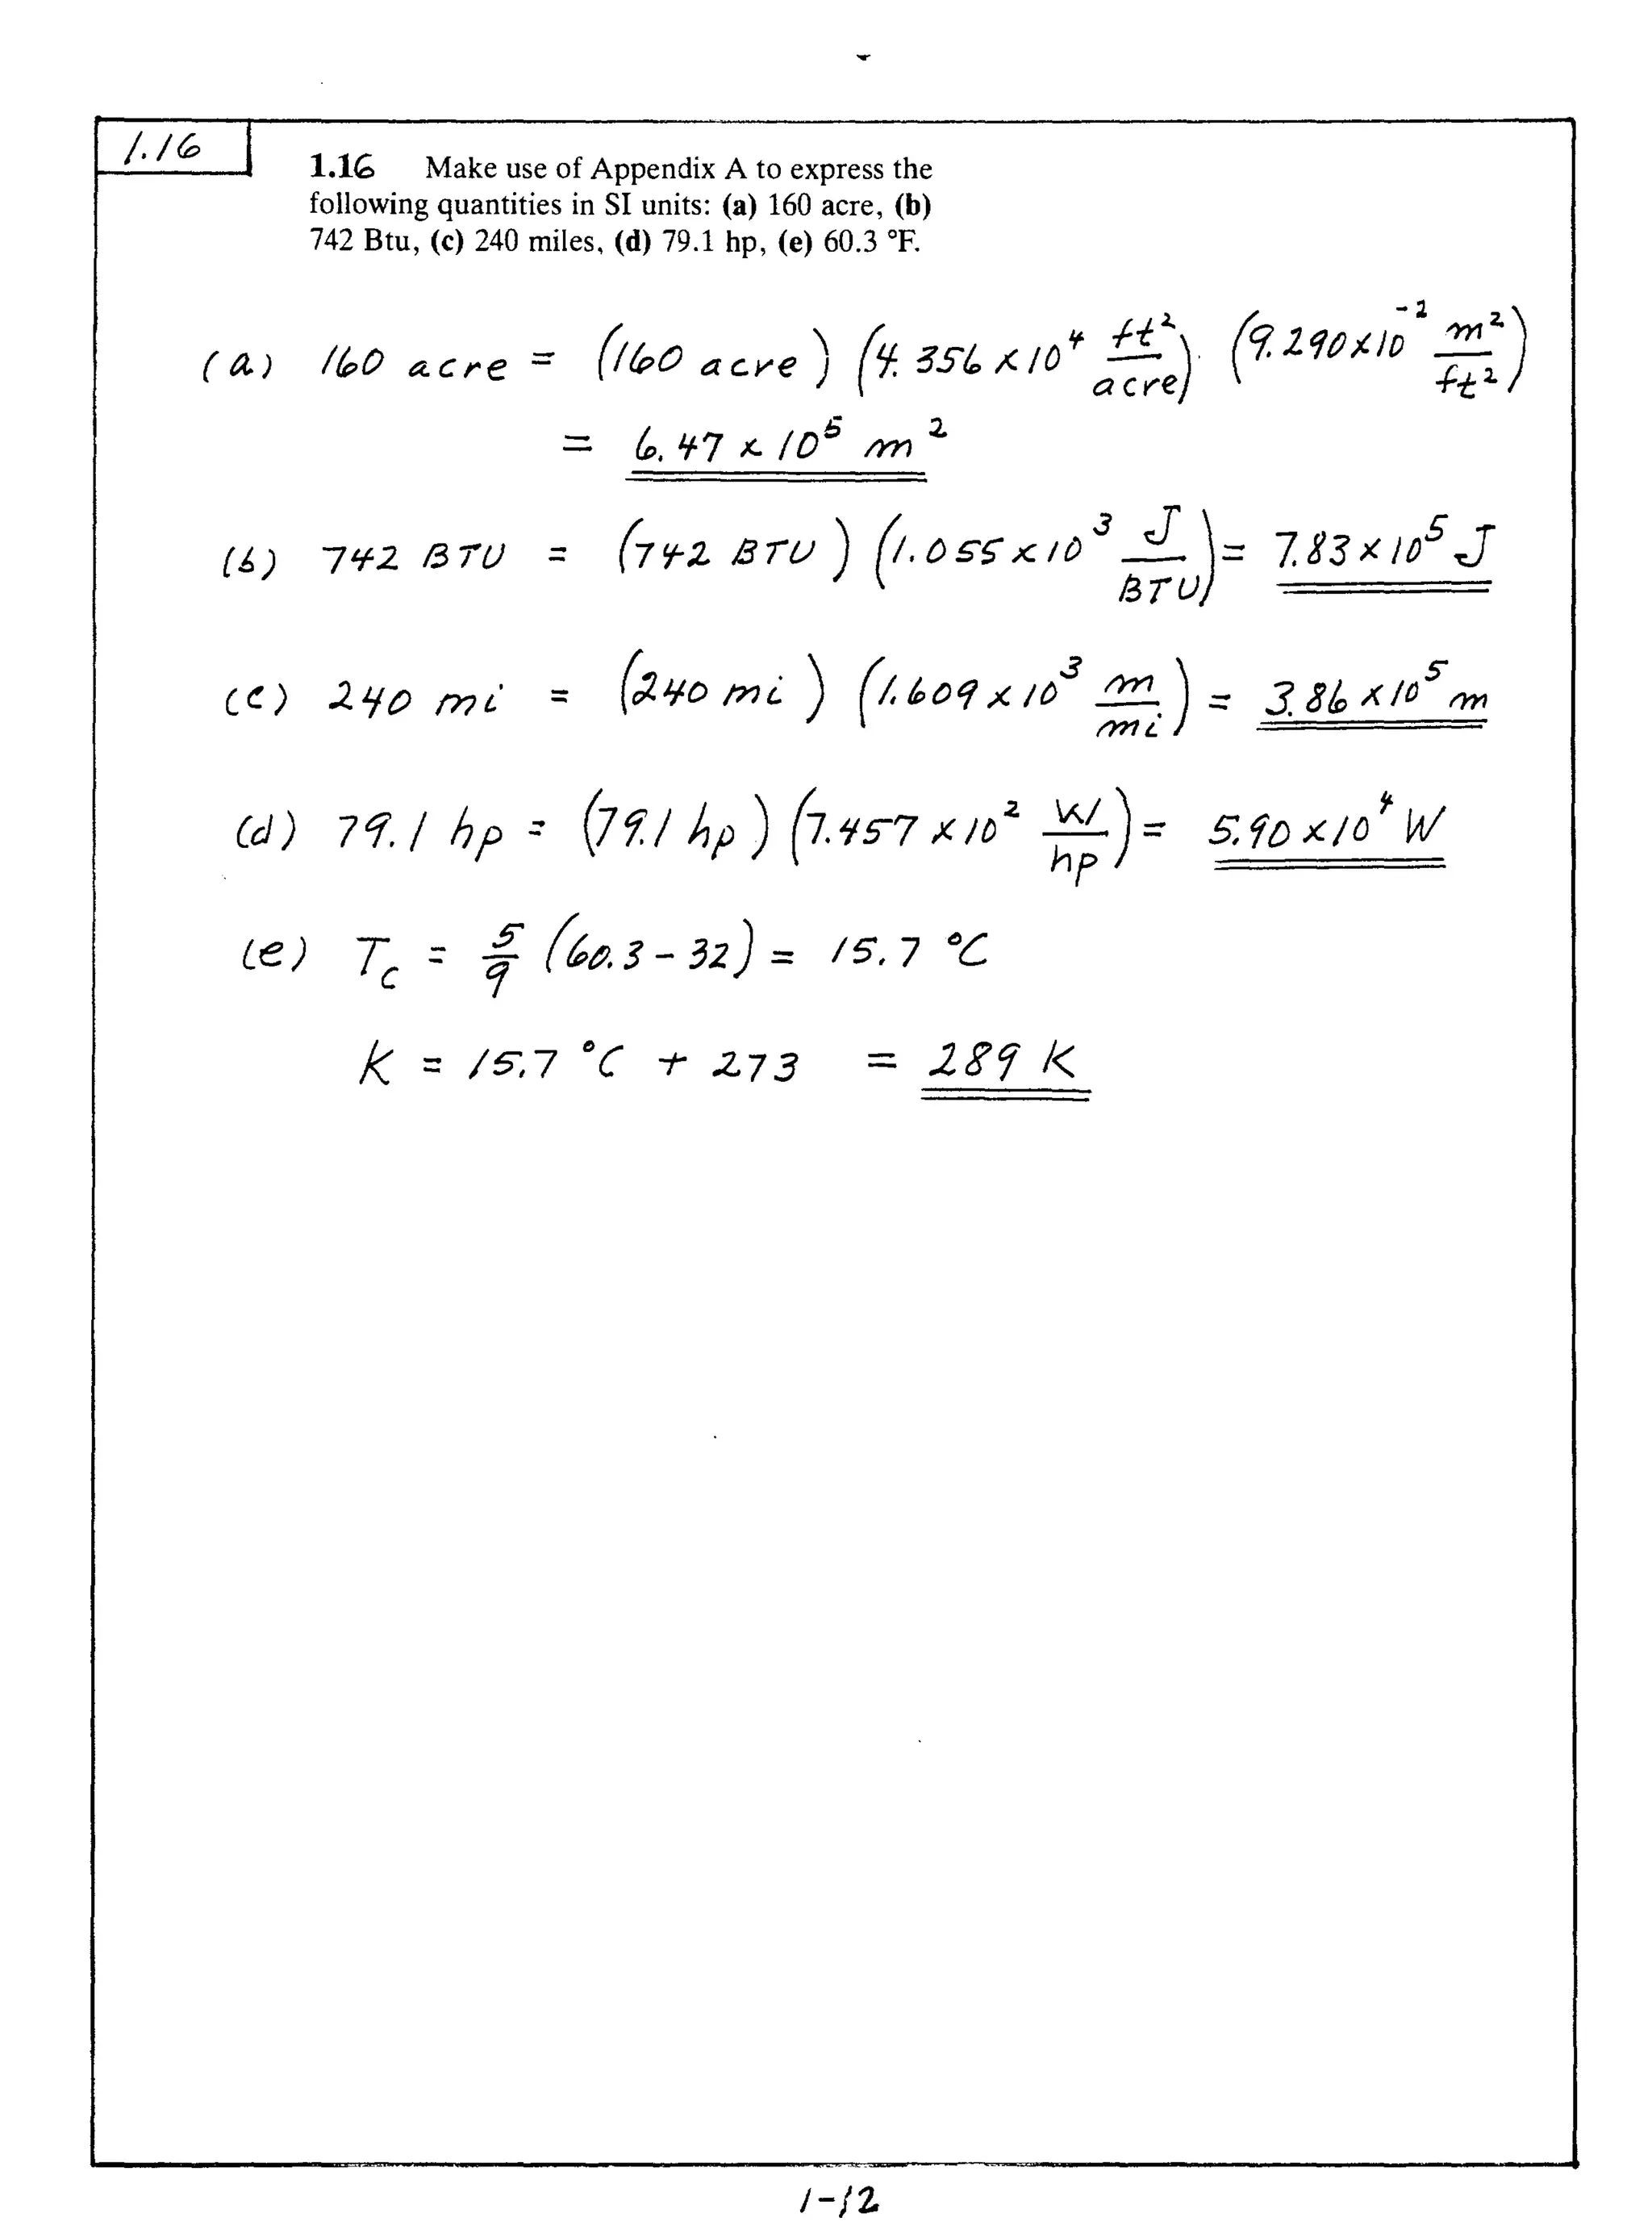 1.16
1.16 Make use of Appendix A to express the
following quantities in SI units: (a) 160 acre, (b)
742 Btu, (c) 240 miles, (d) 79.1 hp, (e) 60.3 °F.
(a) 160 acre = (160 acre) (4.356 x 10⁴ ft²/acre) (9.290 x 10⁻² m²/ft²)
= 6.47 x 10⁵ m²
(b) 742 BTU = (742 BTU) (1.055 x 10³ J/BTU) = 7.83 x 10⁵ J
(c) 240 mi = (240 mi) (1.609 x 10³ m/mi) = 3.86 x 10⁵ m
(d) 79.1 hp = (79.1 hp) (7.457 x 10² W/hp) = 5.90 x 10⁴ W
(e) T_C = 5/9 (60.3 - 32) = 15.7 °C
K = 15.7 °C + 273 = 289 K
1-12